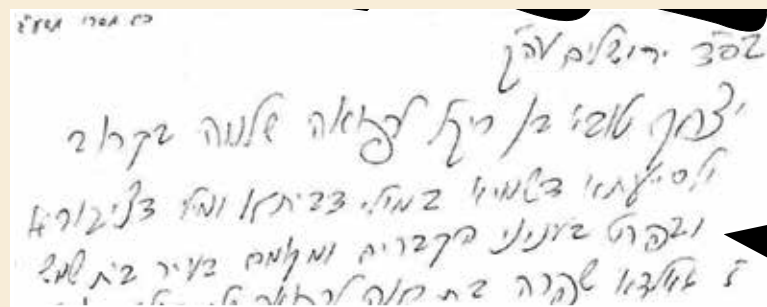 כ״ז תשרי תשע״ג
בס״ד ירושלים עה״ק
יצחק טובי׳ בן ריקל לרפואה שלמה בקרוב
ולסייעתא דשמיא במילי דביתא ומילי דציבורא
ובפרט בעניני הקברים ומקומם בעיר בית שמש
שפרה בת חנה לרפואה